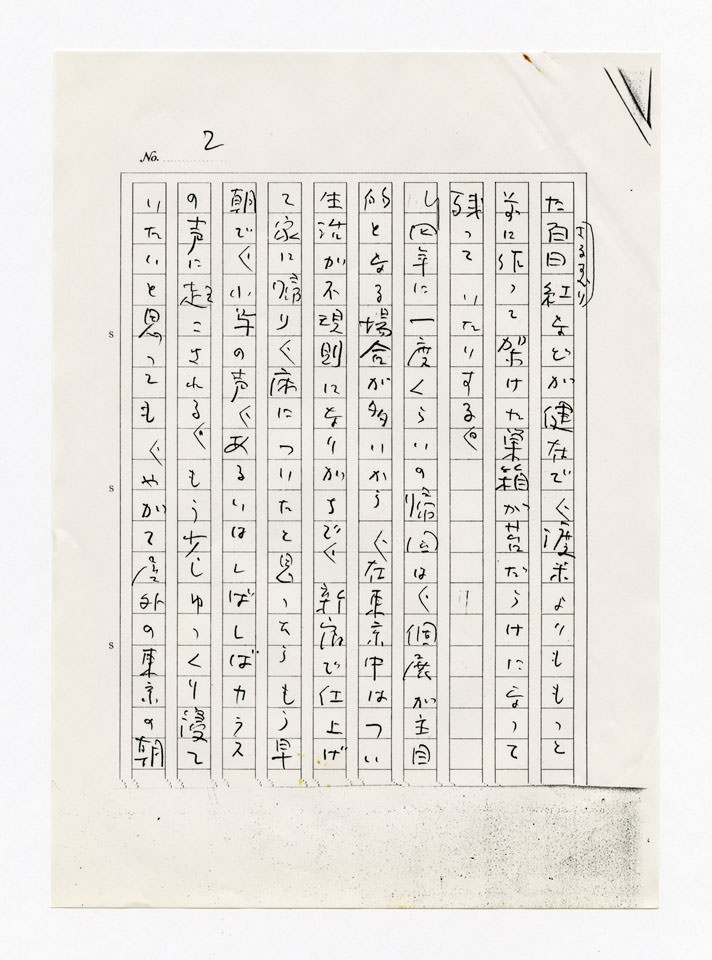 No. 2
た百日紅などが健在で、渡米よりももっと
さるすべり
前に作って架けた巣箱が苔だらけになって
残っていたりする。
四年に一度くらいの帰国は、個展が主目
的となる場合が多いから、在東京中はつい
生活が不規則になりがちで、新宿で仕上げ
て家に帰り、床についたと思ったらもう早
朝で、小鳥の声、あるいはしばしばカラス
の声に起こされる。もう少しゆっくり寝て
いたいと思っても、やがて屋外の東京の朝
s
s
s